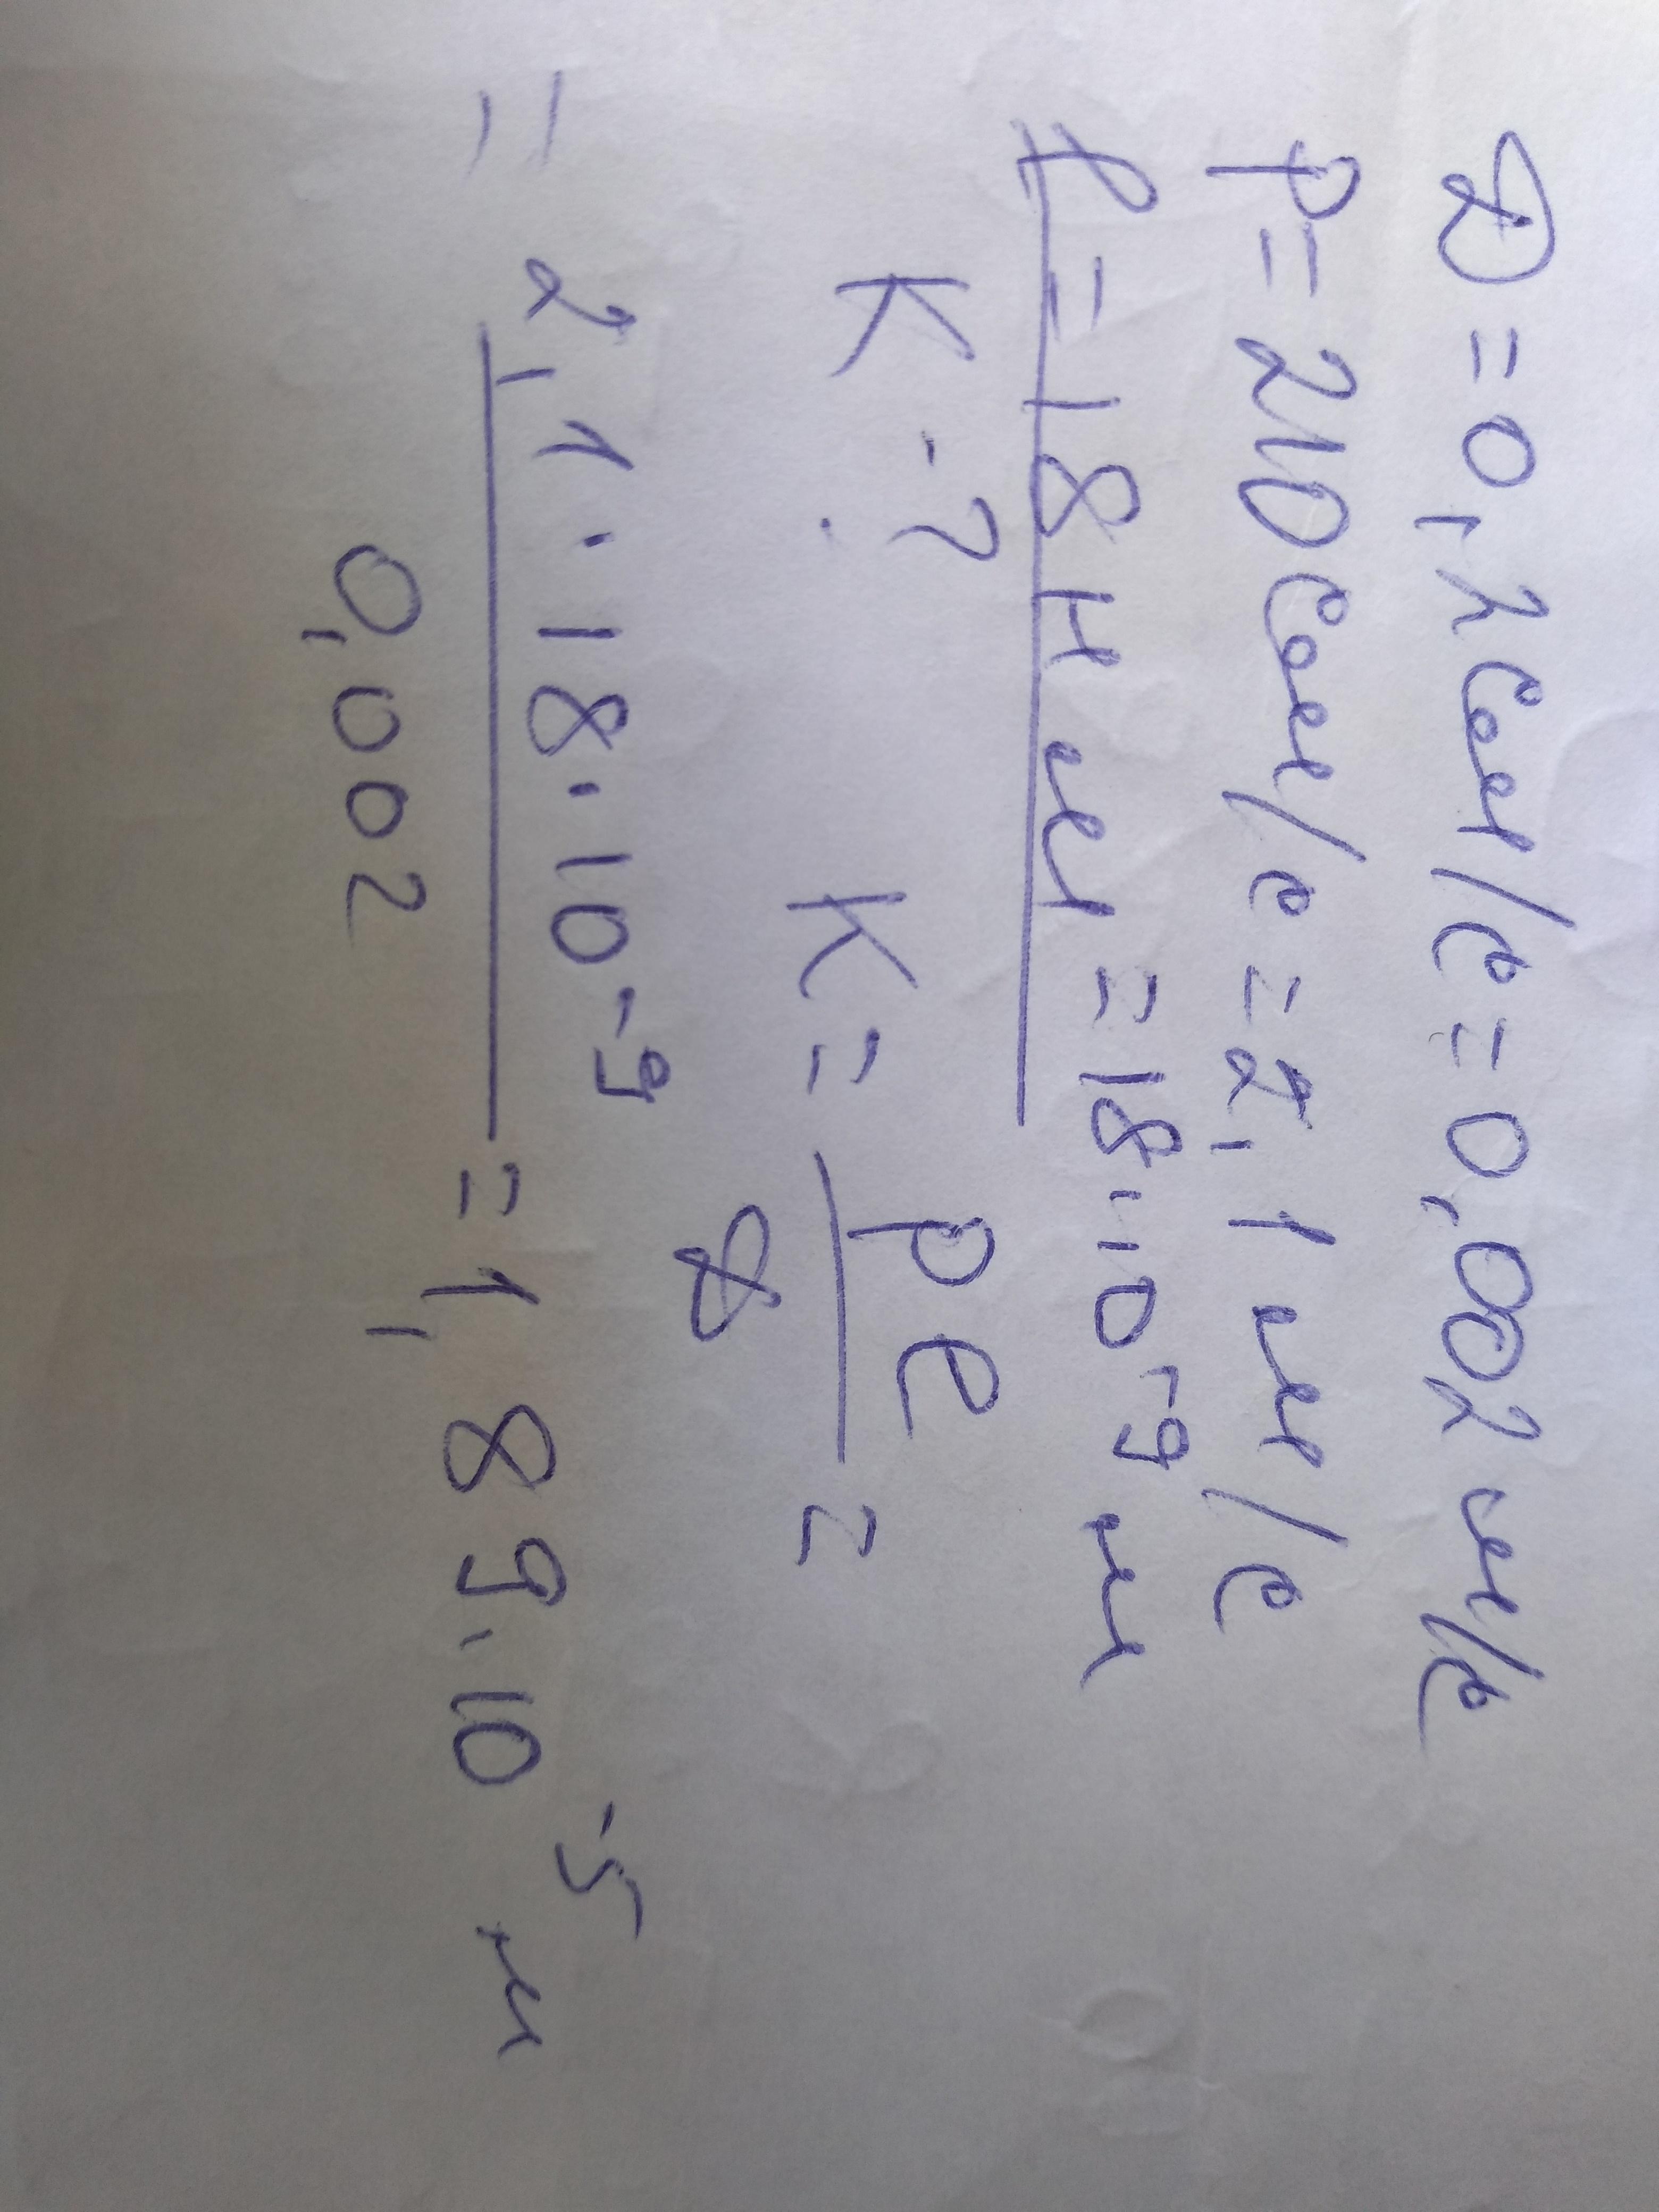 D = 0,2 см/с = 0,002 м/с
P = 210 см/с = 2,1 м/с
l = 18 нм = 18·10⁻⁹ м
K - ?
K = Pl / D =
= 2,1·18·10⁻⁹ / 0,002 = 1,89·10⁻⁵ м